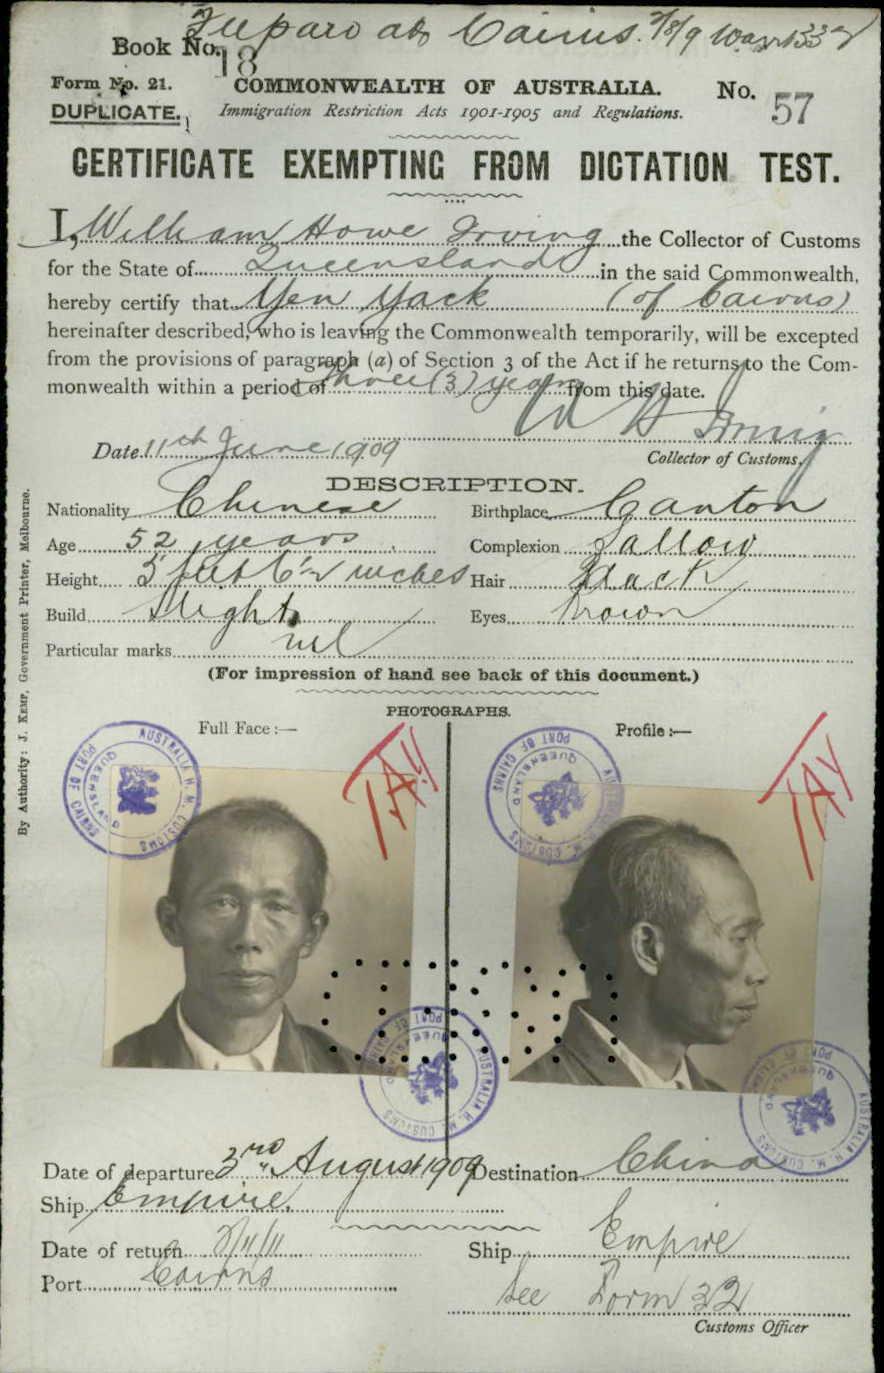 Book No. 18
Cairns.
Form No. 21. COMMONWEALTH OF AUSTRALIA. No. 57
DUPLICATE. Immigration Restriction Acts 1901-1905 and Regulations.
CERTIFICATE EXEMPTING FROM DICTATION TEST.
I, William Howe Irving the Collector of Customs
for the State of Queensland in the said Commonwealth,
hereby certify that Yen Yack (of Cairns)
hereinafter described, who is leaving the Commonwealth temporarily, will be excepted
from the provisions of paragraph (a) of Section 3 of the Act if he returns to the Com-
monwealth within a period of three (3) years from this date.
W H Irving
Date 11th June 1909
Collector of Customs.
DESCRIPTION.
Nationality Chinese Birthplace Canton
Age 52 years Complexion Sallow
Height 5 feet 6½ inches Hair Black
Build Slight Eyes Brown
Particular marks nil
(For impression of hand see back of this document.)
PHOTOGRAPHS.
Full Face :— Profile :—
AUSTRALIA H. M. CUSTOMS PORT OF CAIRNS QUEENSLAND
AUSTRALIA H. M. CUSTOMS PORT OF CAIRNS QUEENSLAND
TAY
TAY
AUSTRALIA H. M. CUSTOMS PORT OF CAIRNS QUEENSLAND
AUSTRALIA H. M. CUSTOMS PORT OF CAIRNS QUEENSLAND
Date of departure 3rd August 1909 Destination China
Ship Empire.
Date of return 2/11/11 Ship Empire
Port Cairns
See Form 32
Customs Officer
By Authority: J. KEMP, Government Printer, Melbourne.